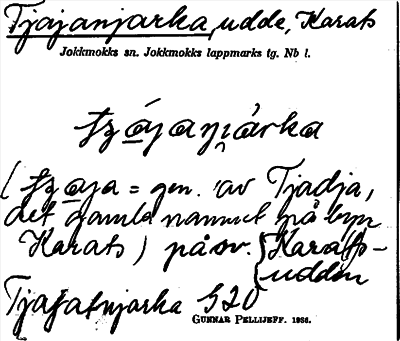 Tjajanjarka, udde, Karats
Jokkmokks sn. Jokkmokks lappmarks tg. Nb l.
tʒájanjárka
(tʒaja = gen. av Tjadja,
det gamla namnet på byn
Karats) på sv. {Karats-
udden
Tjajatnjarka 520
GUNNAR PELLIJEFF. 1936.